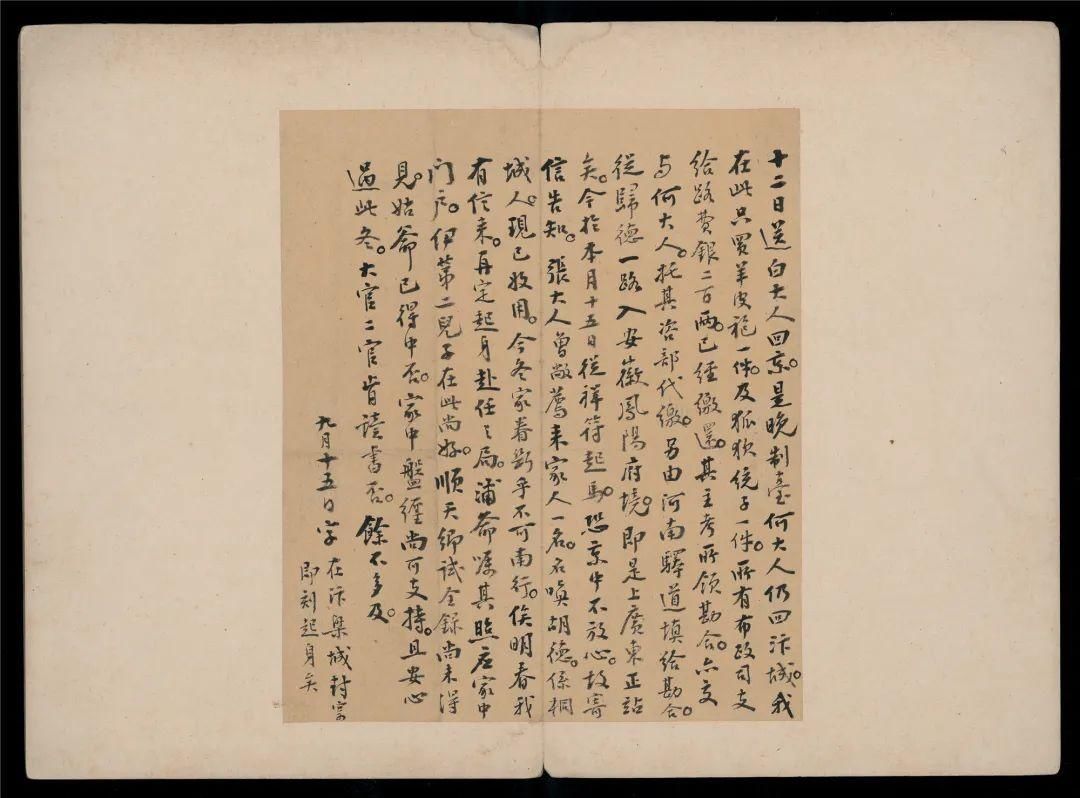 十二日送白大人回京。是晚制臺何大人仍回汴城。我
在此只買羊皮袍一件。及狐狄統子一件。所有布政司支
給路費銀二百兩。已經繳還。其主考所領勘合。亦交
与何大人。托其咨部代繳。另由河南驛道填給勘合。
從歸德一路入安徽鳳陽府境。即是上廣東正站
矣。今於本月十五日從祥符起馬。恐京中不放心。故寄
信告知。張大人曾敞薦来家人一名。名喚胡德。係桐
城人。現已收用。今冬家眷斷乎不可南行。俟明春我
有信来。再定起身赴任之局。浦爺囑其照应家中
门户。伊第二兒子在此尚好。順天鄉试全錄尚未得
見。姑爺已得中否。家中盤缠尚可支持。且安心
過此冬。大官二官肯读書否。餘不多及。
九月十五日字 在汴梁城封字
即刻起身矣